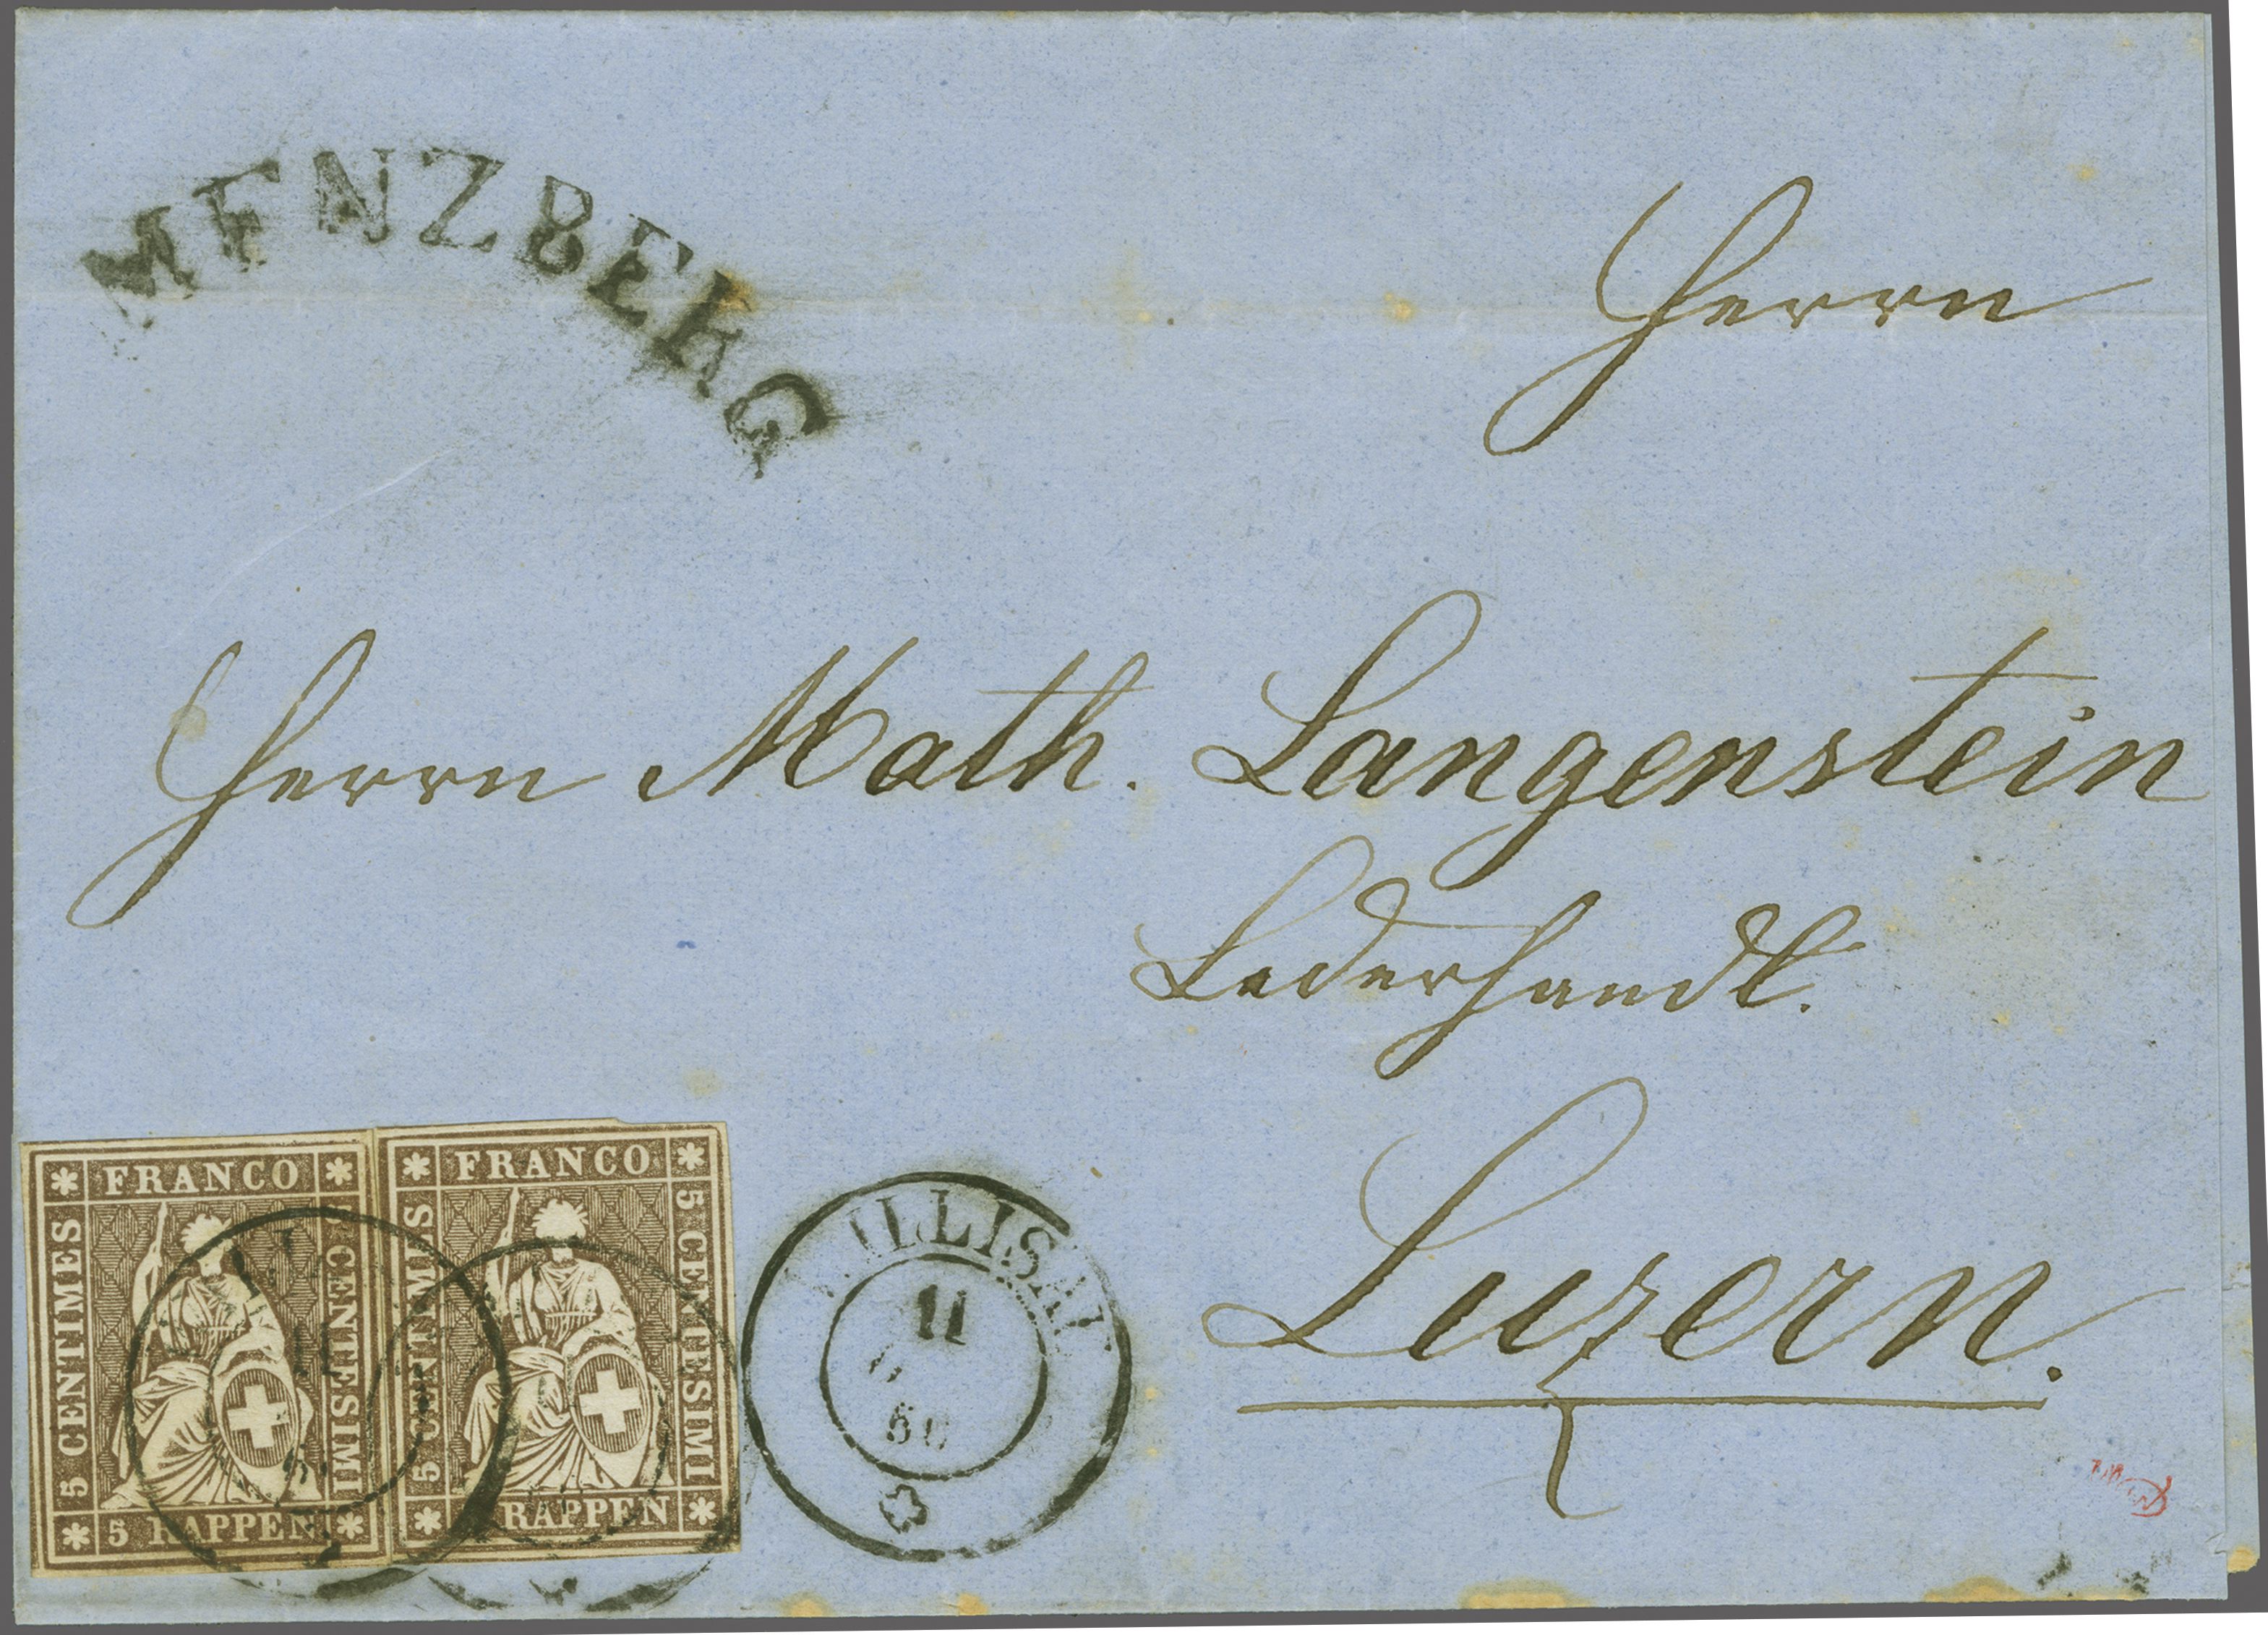 MENZBERG
Herrn
Herrn Math. Langenstein
Lederhandl.
Luzern.
FRANCO
5 CENTIMES
5 CENTESIMI
5 RAPPEN
FRANCO
5 CENTIMES
5 CENTESIMI
RAPPEN
WILLISAU
11